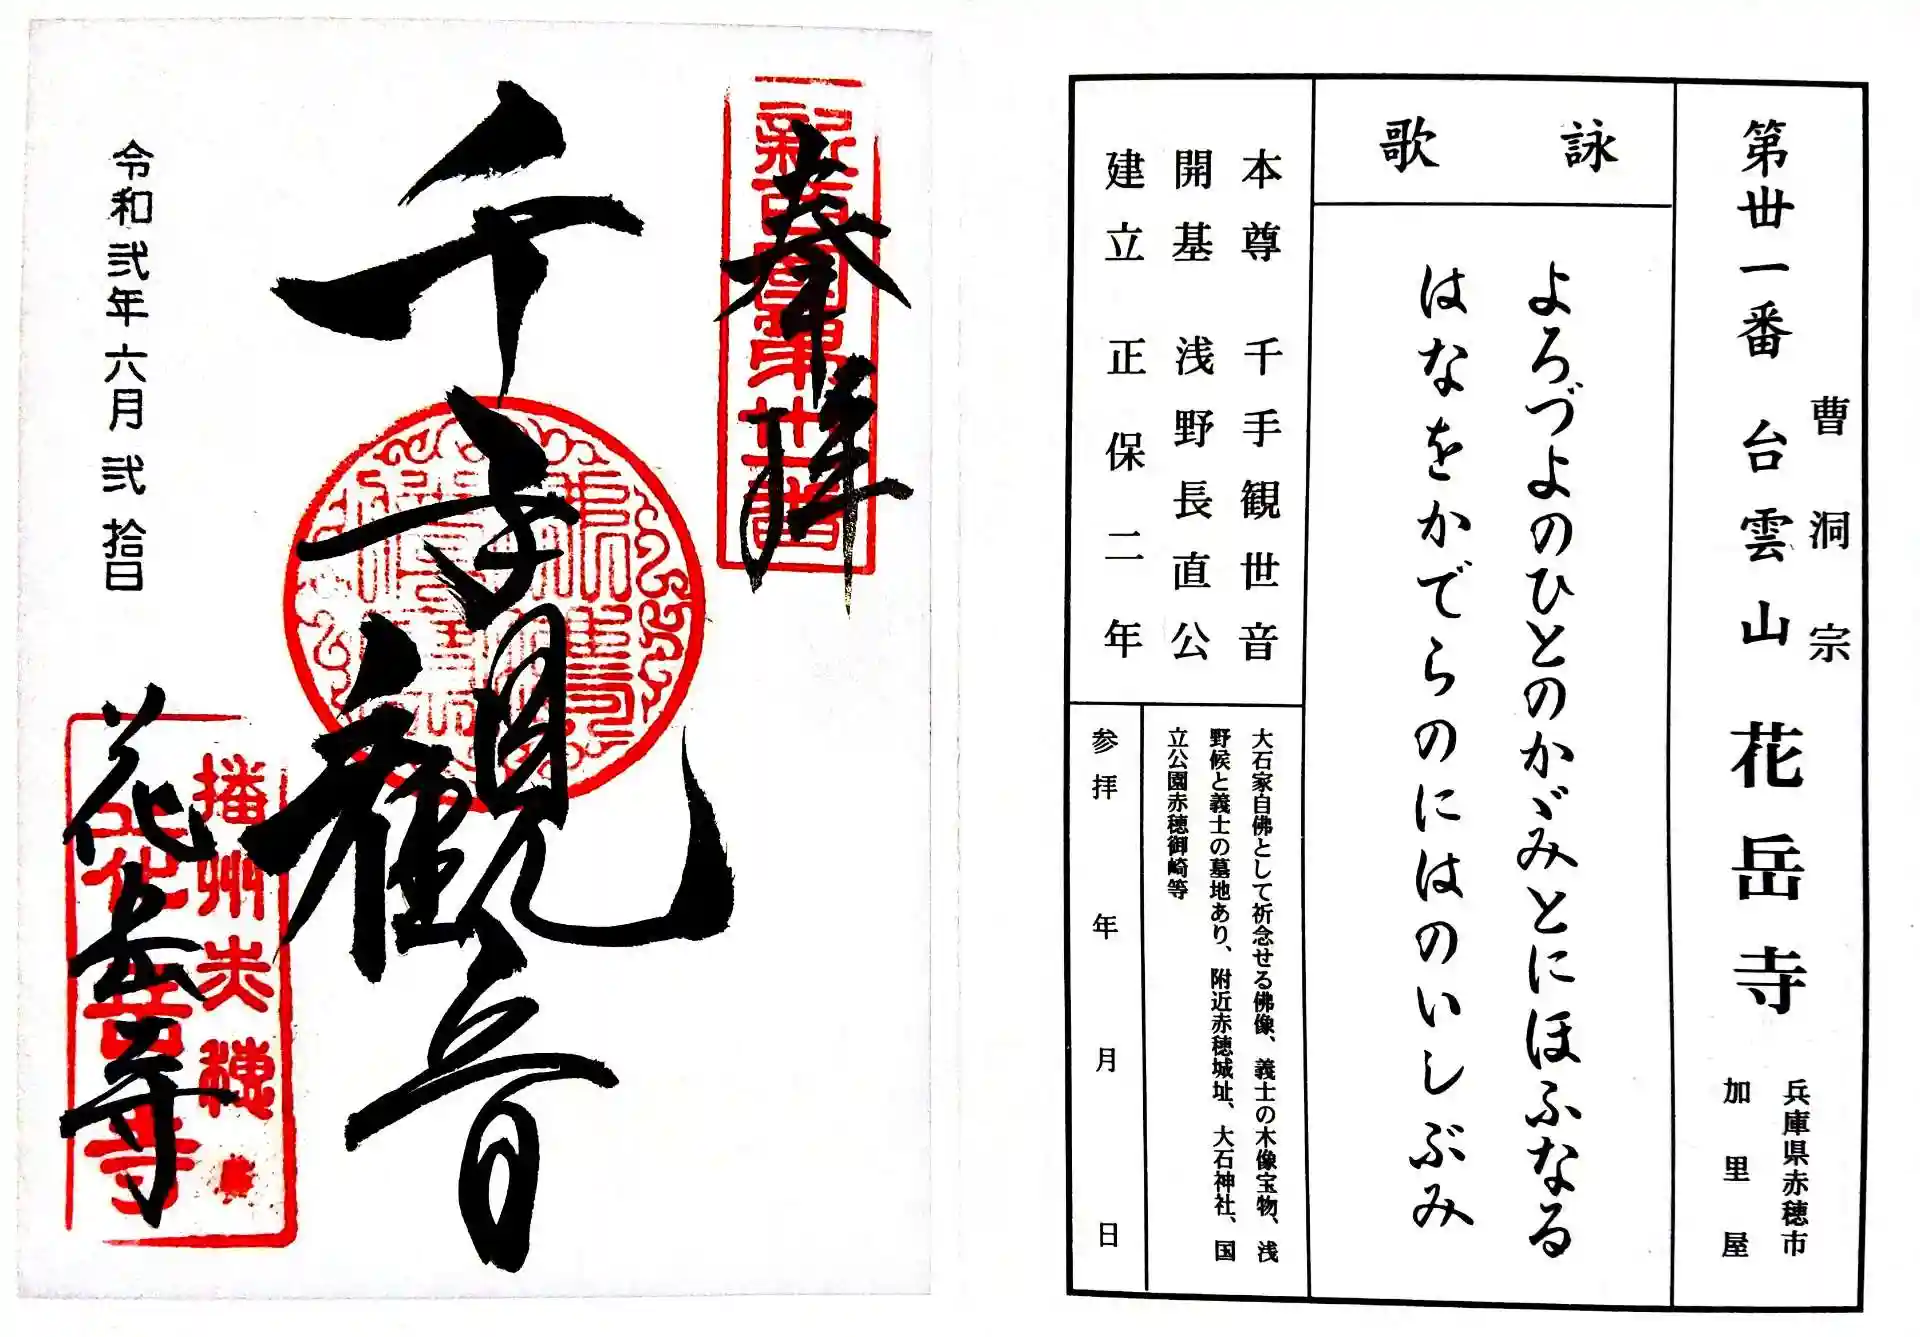 曹洞宗
第丗一番 台雲山 花岳寺
兵庫県赤穂市
加里屋
詠歌
よろづよのひとのかゞみとにほふなる
はなをかでらのにはのいしぶみ
本尊 千手観世音
開基 浅野長直公
建立 正保二年
大石家自佛として祈念せる佛像、義士の木像宝物、浅
野候と義士の墓地あり、附近赤穂城址、大石神社、国
立公園赤穂御崎等
参拝 年 月 日
奉拝
新西国第丗一番
千手観音
花岳寺
播州赤穂
花岳寺
令和弐年六月弐拾日